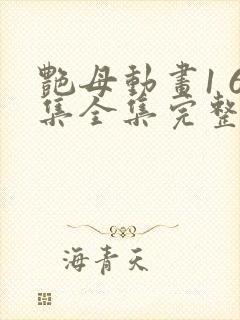 艷母動畫1 6
集全集完整
海青天